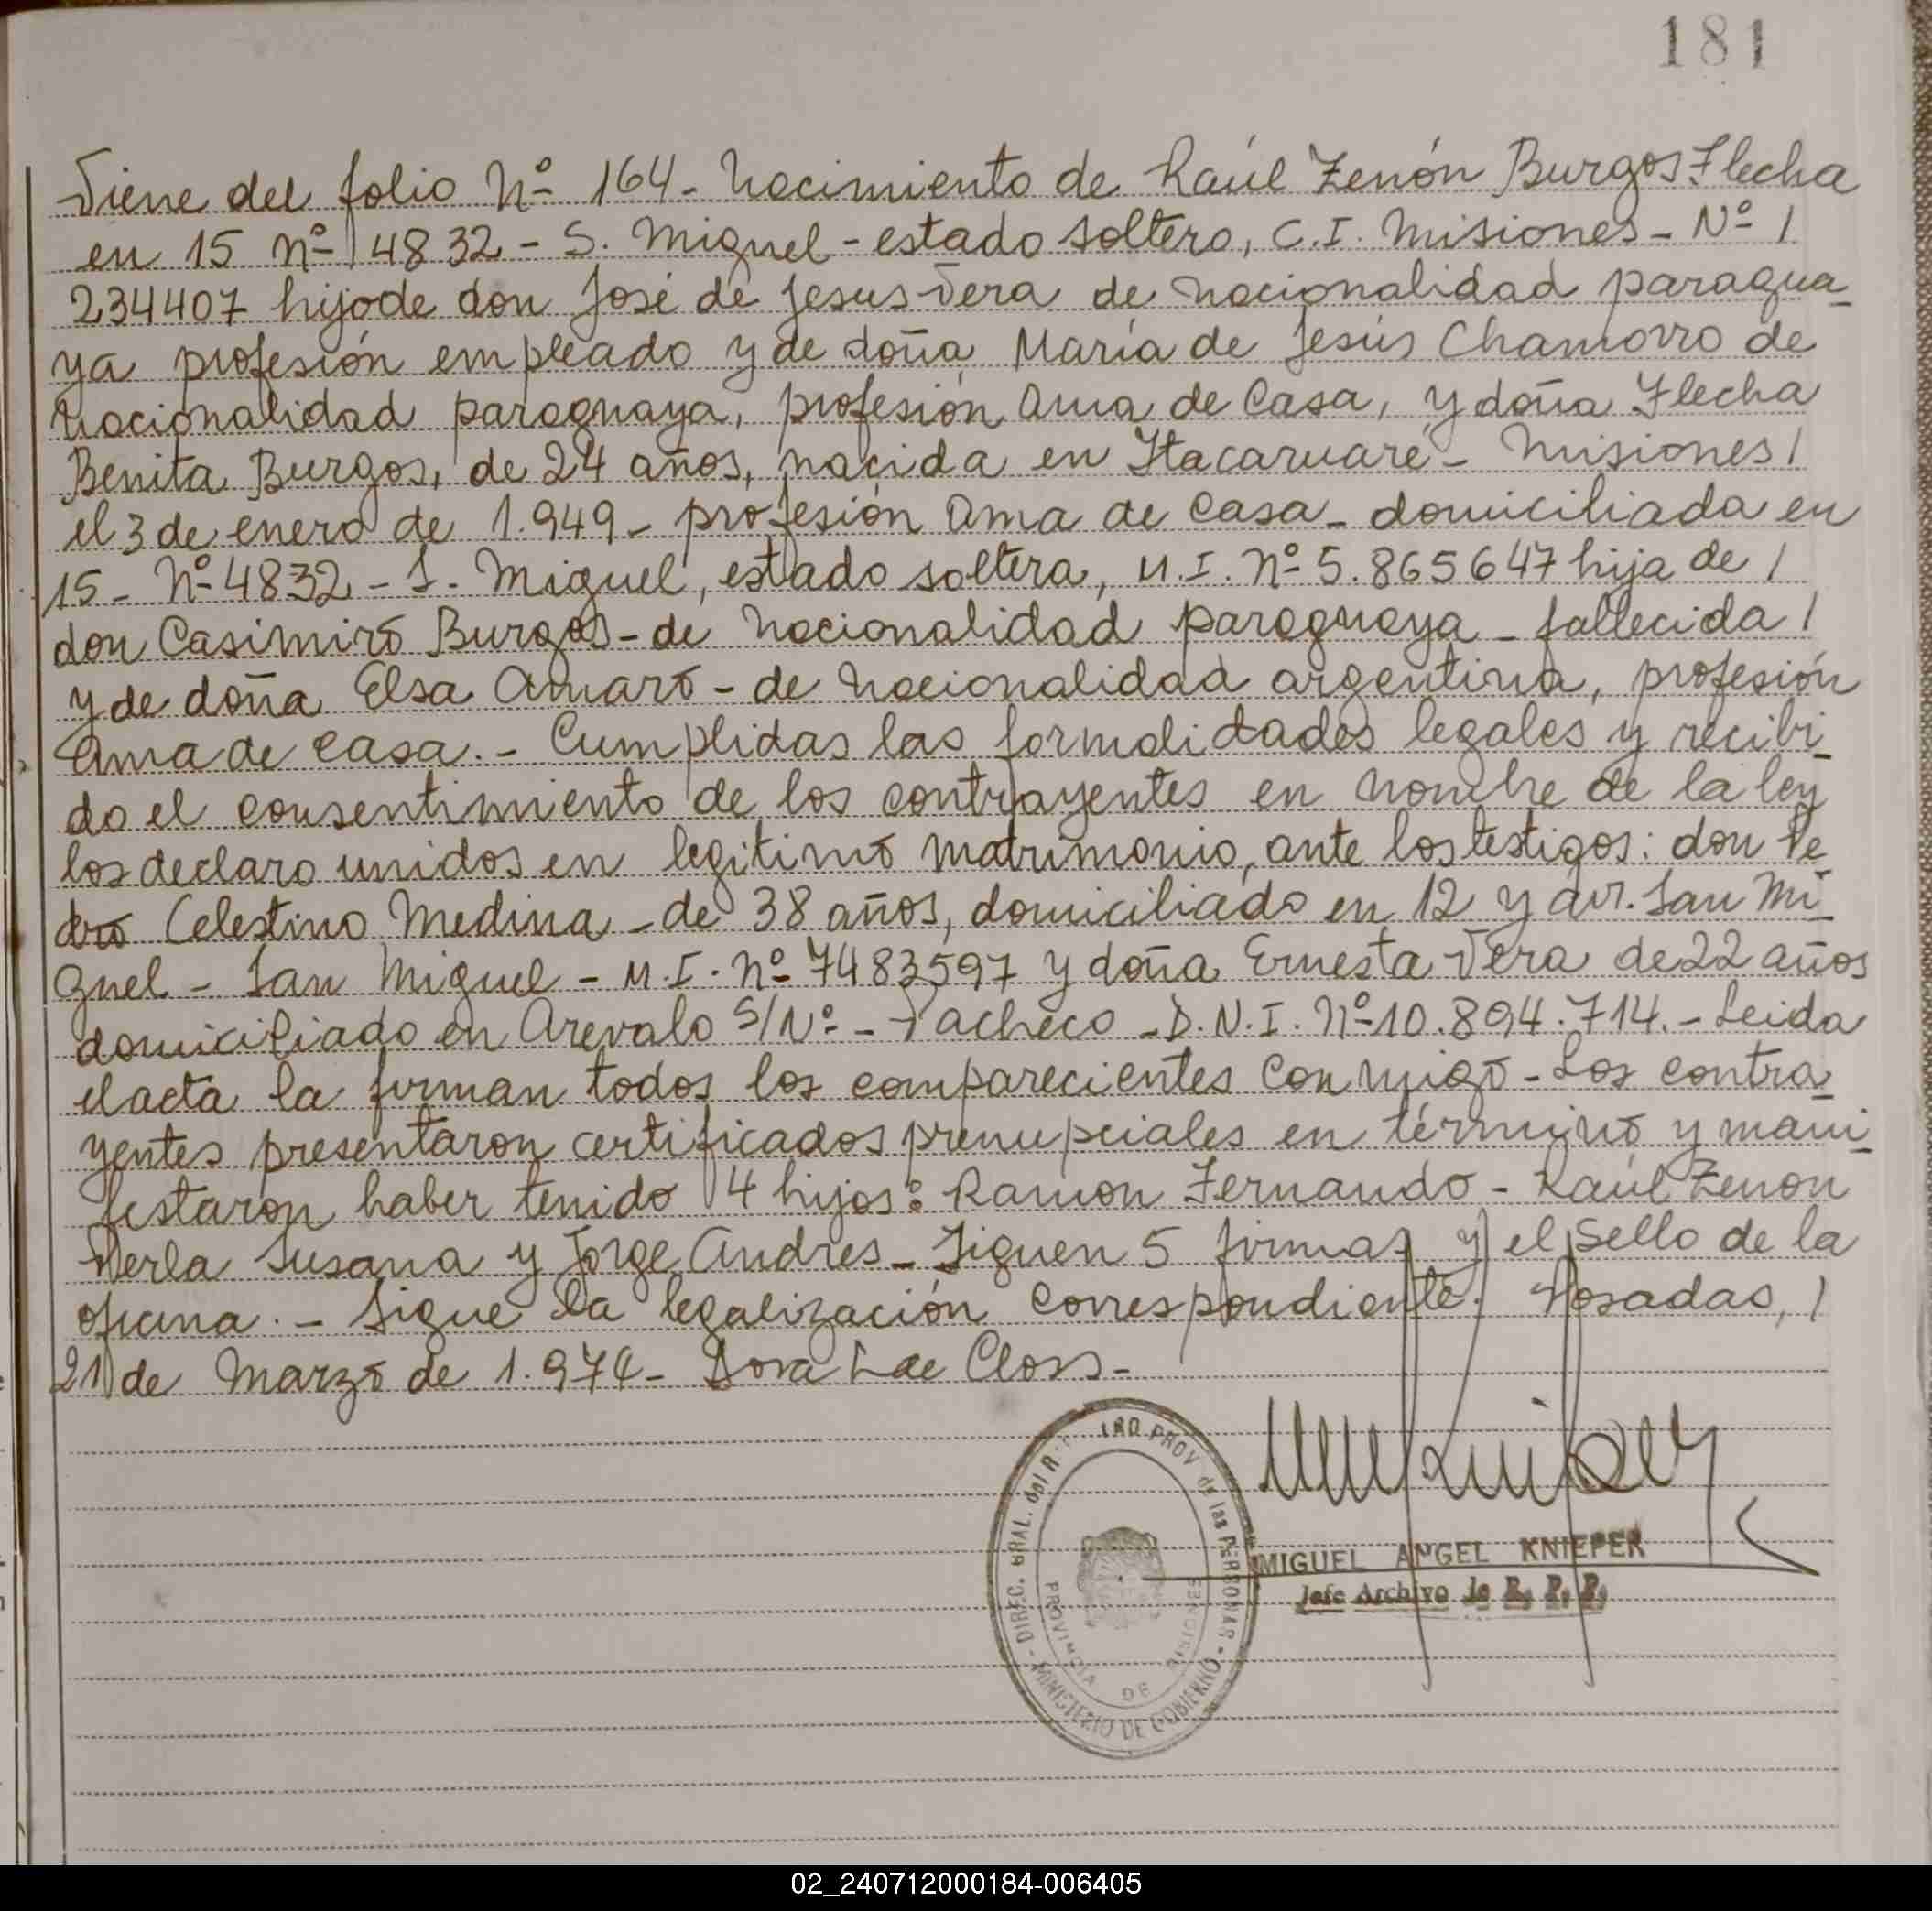 181
Viene del folio Nº 164 - Nacimiento de Raúl Zenón Burgos Flecha
en 15 Nº 4832 - S. Miguel - estado soltero, C.I. Misiones - Nº /
234407 hijo de don José de Jesus Vera de nacionalidad paragua-
ya profesión empleado y de doña María de Jesús Chamorro de
nacionalidad paraguaya, profesión Ama de Casa, y doña Flecha
Benita Burgos, de 24 años, nacida en Itacaruaré - Misiones /
el 3 de enero de 1.949 - profesión Ama de Casa - domiciliada en
15 - Nº 4832 - S. Miguel, estado soltera, M.I. Nº 5.865647 hija de /
don Casimiro Burgos - de nacionalidad paraguaya - fallecida /
y de doña Elsa Amaro - de nacionalidad argentina, profesión
Ama de Casa. - Cumplidas las formalidades legales y recibi-
do el consentimiento de los contrayentes en nombre de la ley
los declaro unidos en legitimo matrimonio, ante los testigos: don Pe-
dro Celestino Medina - de 38 años, domiciliado en 12 y avr. San Mi-
guel - San Miguel - M.I. Nº 7483597 y doña Ernesta Vera de 22 años
domiciliado en Arevalo S/Nº - Pacheco - D.N.I. Nº 10.894.714. - Leida
el acta la firman todos los comparecientes conmigo - Los contra-
yentes presentaron certificados prenupciales en término y mani-
festaron haber tenido 4 hijos: Ramon Fernando - Raúl Zenon
Merla Susana y Jorge Andres - Siguen 5 firmas y el sello de la
oficina. - Sigue la legalización correspondiente. Posadas, /
21 de Marzo de 1.974 - Dora L de Closs -
DIREC. GRAL. del R PROV de las PERSONAS
MINISTERIO DE GOBIERNO
PROVINCIA DE MISIONES
MIGUEL ANGEL KNIEPER
Jefe Archivo de R. P. P.
02_240712000184-006405